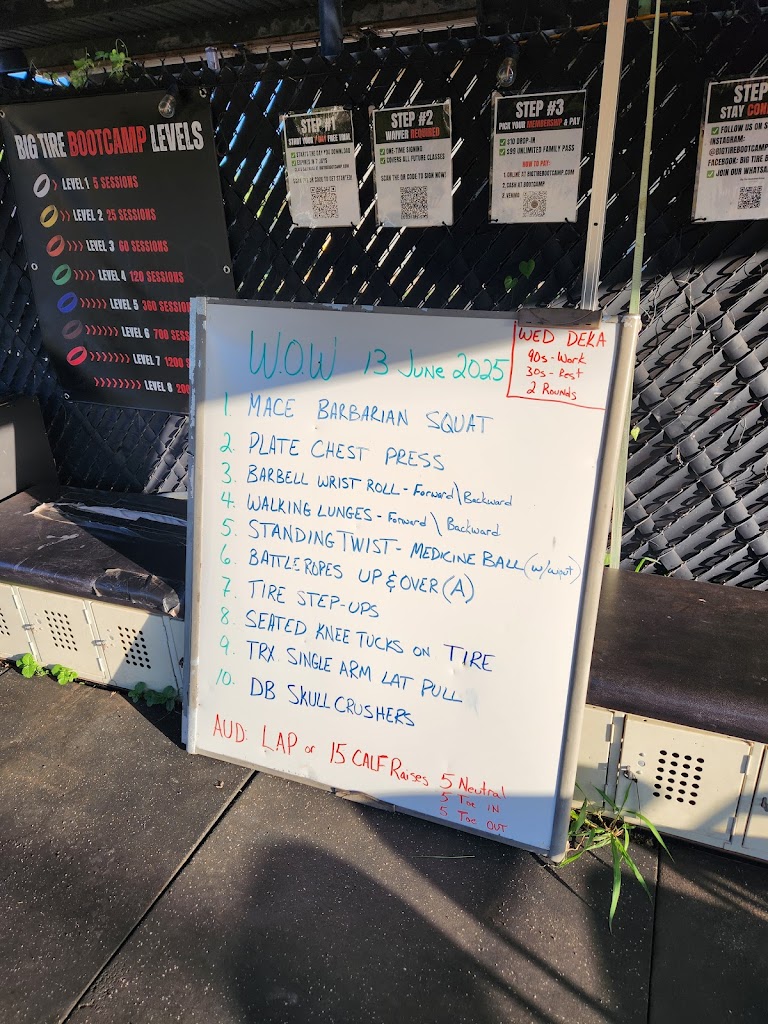 BIG TIRE BOOTCAMP LEVELS
LEVEL 1 5 SESSIONS
LEVEL 2 25 SESSIONS
LEVEL 3 60 SESSIONS
LEVEL 4 120 SESSIONS
LEVEL 5 360 SESSIONS
LEVEL 6 700 SES
LEVEL 7 1200 S
LEVEL 8 200
STEP #1
START YOUR FREE
STEP #2
WAIVER REQUIRED
ONE-TIME SIGNING
COVERS ALL FUTURE CLASSES
SCAN THE QR CODE TO SIGN NOW!
STEP #3
PICK YOUR MEMBERSHIP & PAY
$10 DROP-IN
$99 UNLIMITED FAMILY PASS
HOW TO PAY:
1. ONLINE AT BIGTIREBOOTCAMP.COM
2. CASH AT BOOTCAMP
3. VENMO
STEP
STAY CON
FOLLOW US ON S
INSTAGRAM:
@BIGTIREBOOTC
FACEBOOK: BIG TIRE B
JOIN OUR WHATSA
W.O.W 13 June 2025
WED DEKA
90s - Work
30s - Rest
2 Rounds
1. MACE BARBARIAN SQUAT
2. PLATE CHEST PRESS
3. BARBELL WRIST ROLL - Forward\Backward
4. WALKING LUNGES - Forward\Backward
5. STANDING TWIST - MEDICINE BALL
6. BATTLE ROPES UP & OVER (A)
7. TIRE STEP-UPS
8. SEATED KNEE TUCKS ON TIRE
9. TRX SINGLE ARM LAT PULL
10. DB SKULL CRUSHERS
AUD: LAP or 15 CALF Raises 5 Neutral
5 Toe IN
5 Toe OUT